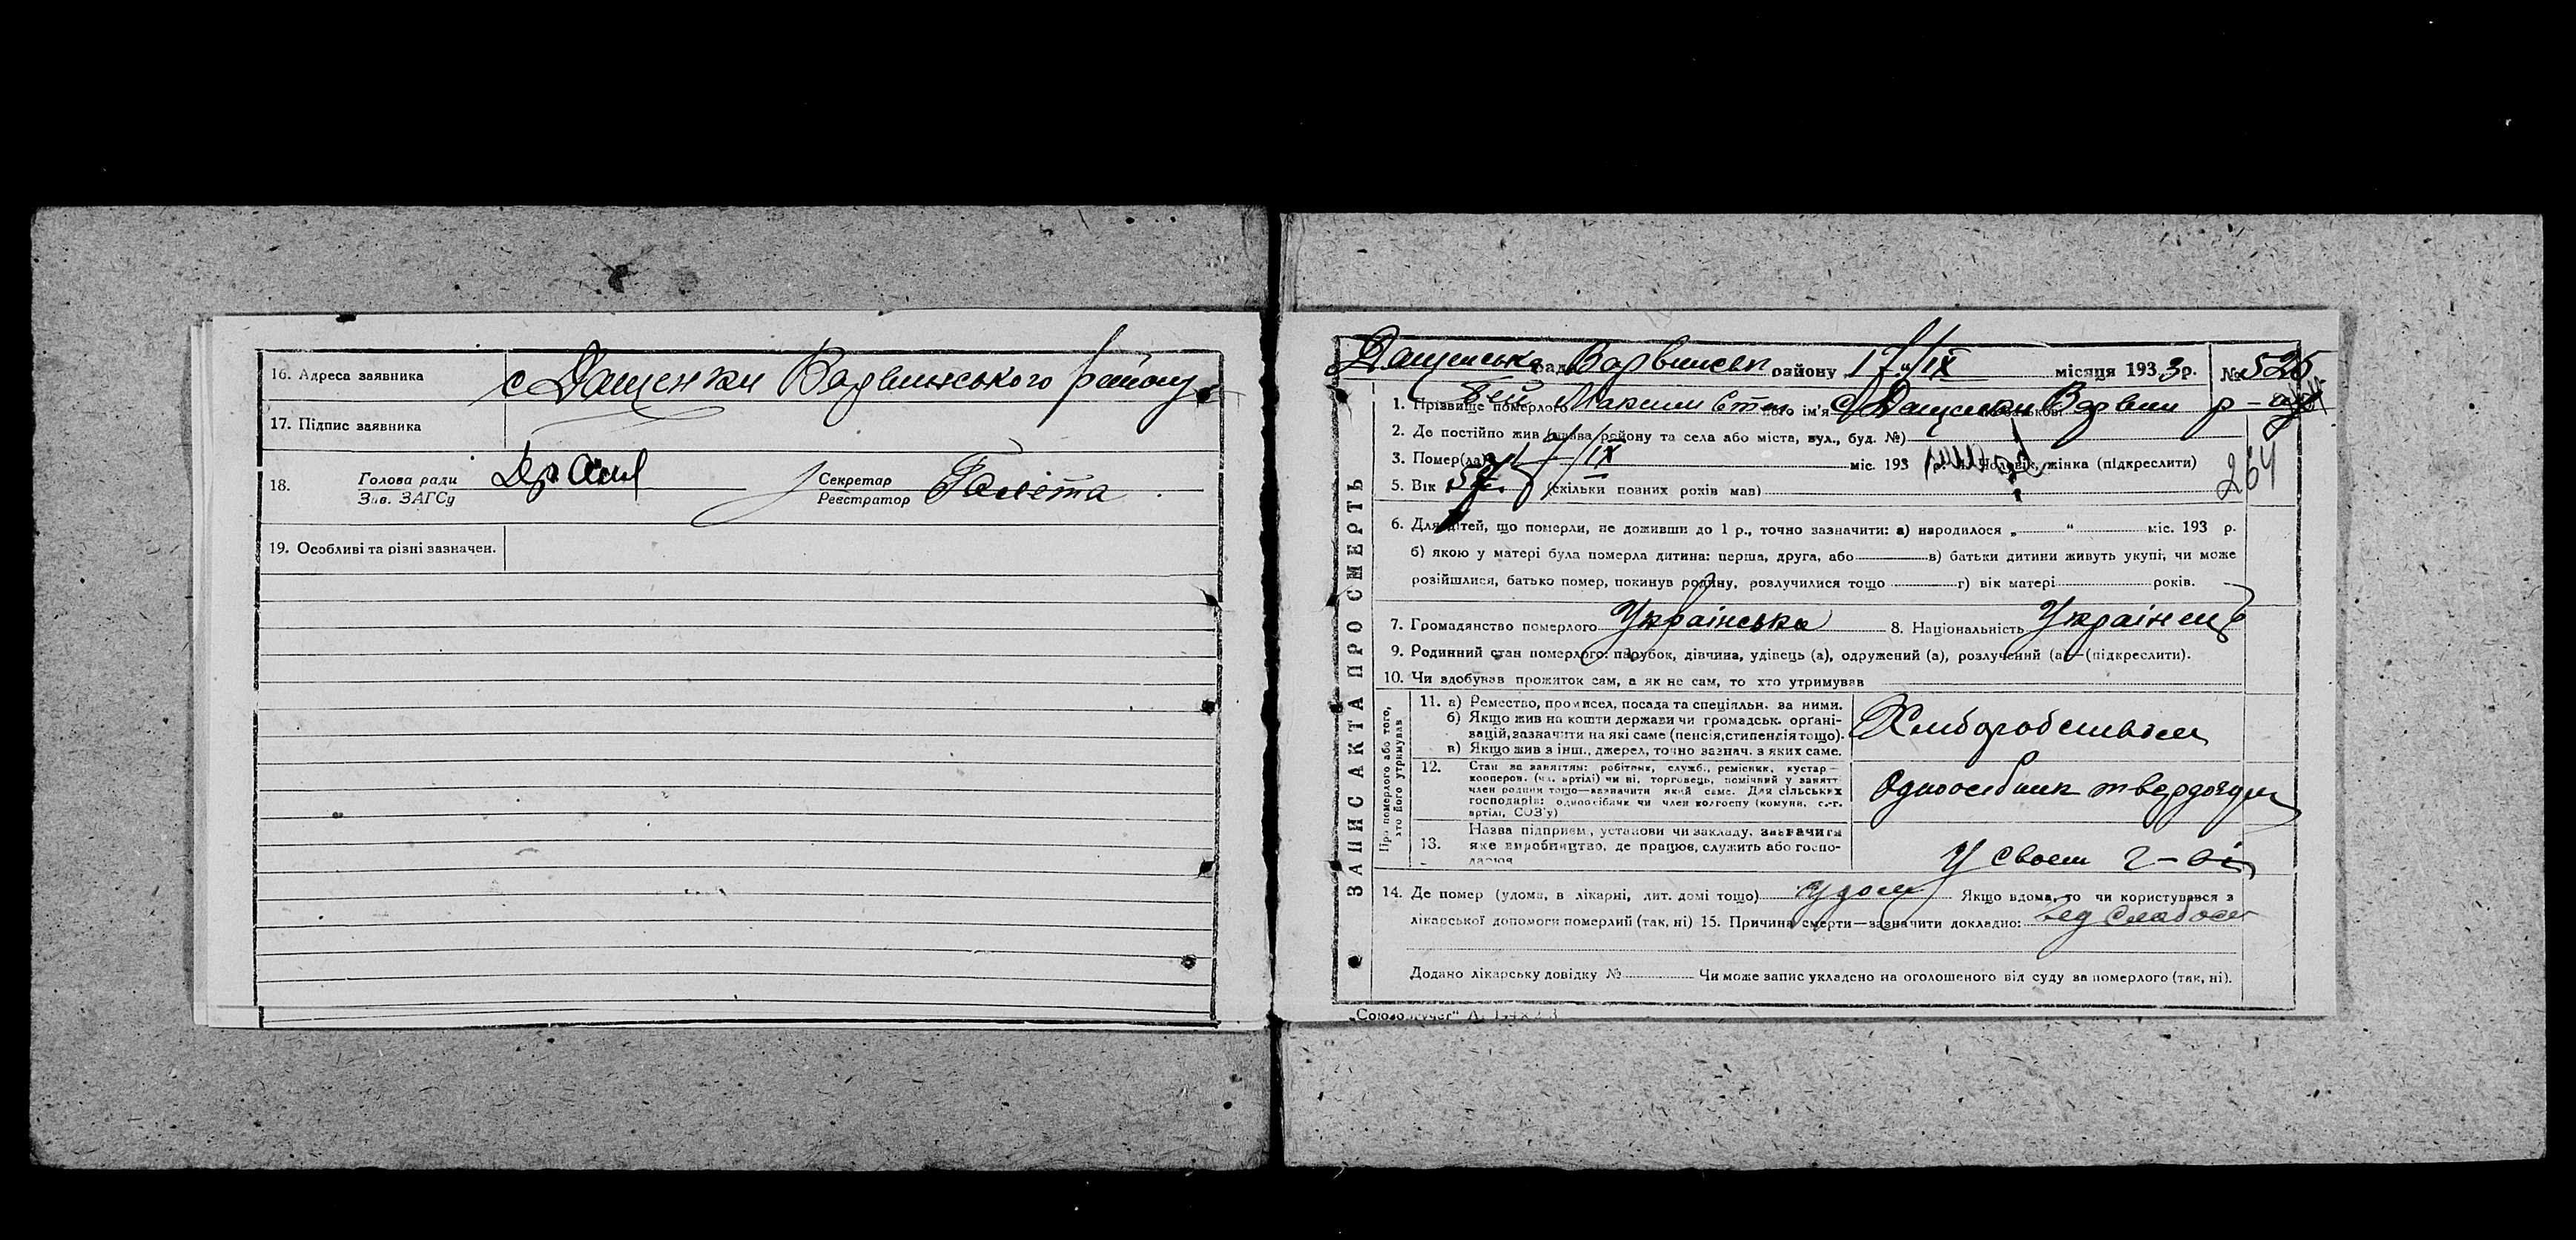 16. Адреса заявника с Дащенки Варвинського району
17. Підпис заявника
18. Голова ради Секретар
Зав. ЗАГСу Реєстратор Галета
19. Особливі та різні зазначен.
Дащенська рада Варвинськ району 17/IX місяця 1933 р. № 525
1. Прізвище померлого Гей Максим Степ його ім'я с Дащенки Варвин р-ну
2. Де постійно жив (назва району та села або міста, вул., буд. №)
3. Помер(ла) 17/IX міс. 193 р. 4. Чоловік, жінка (підкреслити)
264
5. Вік 57 (скільки повних років мав)
6. Для дітей, що померли, не доживши до 1 р., точно зазначити: а) народилося „ “ міс. 193 р.
б) якою у матері була померла дитина: перша, друга, або в) батьки дитини живуть укупі, чи може
розійшлися, батько помер, покинув родину, розлучилися тощо г) вік матері років.
7. Громадянство померлого Українська 8. Національність Українець
9. Родинний стан померлого: парубок, дівчина, удівець (а), одружений (а), розлучений (а)—(підкреслити).
10. Чи здобував прожиток сам, а як не сам, то хто утримував
ЗАПИС АКТА ПРО СМЕРТЬ
Про померлого або того,
хто його утримував
11. а) Ремество, промисел, посада та спеціяльн. за ними.
б) Якщо жив на кошти держави чи громадськ. орґані-
зацій, зазначити на які саме (пенсія, стипендія тощо).
в) Якщо жив з інш., джерел, точно зазнач. з яких саме.
Хліборобством
12. Стан за заняттям: робітник, служб., ремісник, кустар—
кооперов. (чл. артілі) чи ні, торговець, помічний у занятті
член родини тощо—зазначити який саме. Для сільських
господарів: одноосібник чи член колгоспу (комуни, с.-г.
артілі, СОЗ'у)
Одноосібник твердоздач
13. Назва підприєм., установи чи закладу, зазначити
яке виробництво, де працює, служить або госпо-
дарює
У своєм г-ві
14. Де помер (удома, в лікарні, лит. домі тощо) удома Якщо вдома, то чи користувався з
лікарської допомоги померлий (так, ні) 15. Причина смерти—зазначити докладно: від слабости
Додано лікарську довідку № Чи може запис укладено на оголошеного від суду за померлого (так, ні).